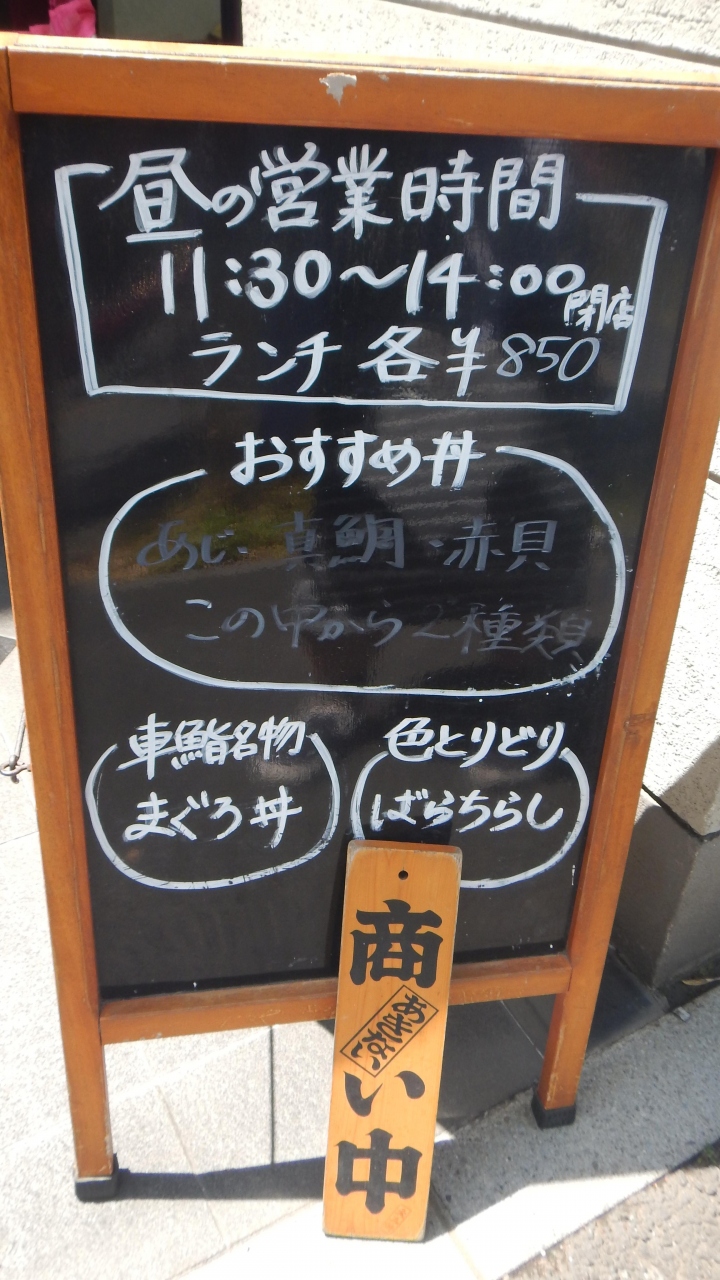 昼の営業時間
11:30～14:00
閉店
ランチ 各¥850
おすすめ丼
あじ・真鯛・赤貝
この中から2種類
車鮨名物
まぐろ丼
色とりどり
ばらちらし
商い中
あきない